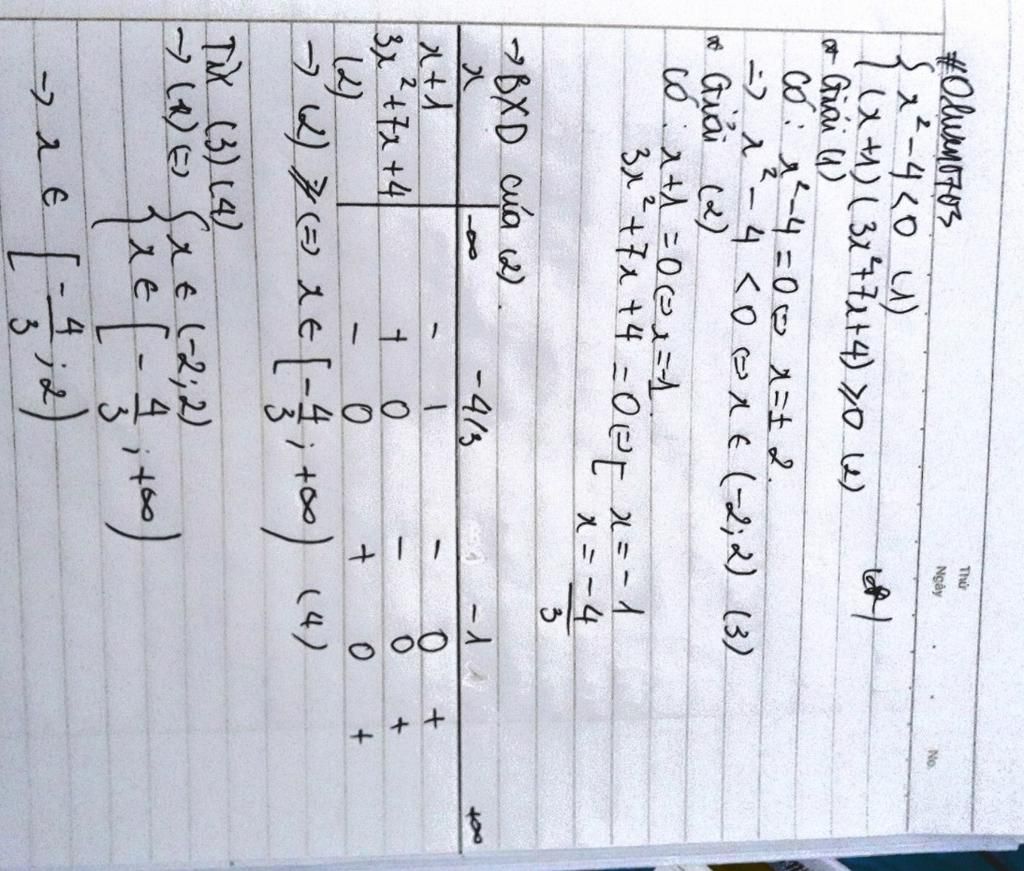 Thứ
Ngày
No.
#Olwen0703
{ x² - 4 < 0 (1)
(x + 1)(3x² + 7x + 4) ≥ 0 (2)
* Giải (1)
Có: x² - 4 = 0 ⇔ x = ± 2.
→ x² - 4 < 0 ⇔ x ∈ (-2; 2) (3)
* Giải (2)
Có: x + 1 = 0 ⇔ x = -1
3x² + 7x + 4 = 0 ⇔ [ x = -1
x = -4/3
→ BXD của (2).
x -∞ -4/3 -1 +∞
x + 1 - | - 0 +
3x² + 7x + 4 + 0 - 0 +
(2) - 0 + 0 +
→ (2) ⇔ x ∈ [-4/3; +∞) (4)
Từ (3)(4)
→ (*) ⇔ { x ∈ (-2; 2)
x ∈ [-4/3; +∞)
→ x ∈ [-4/3; 2)